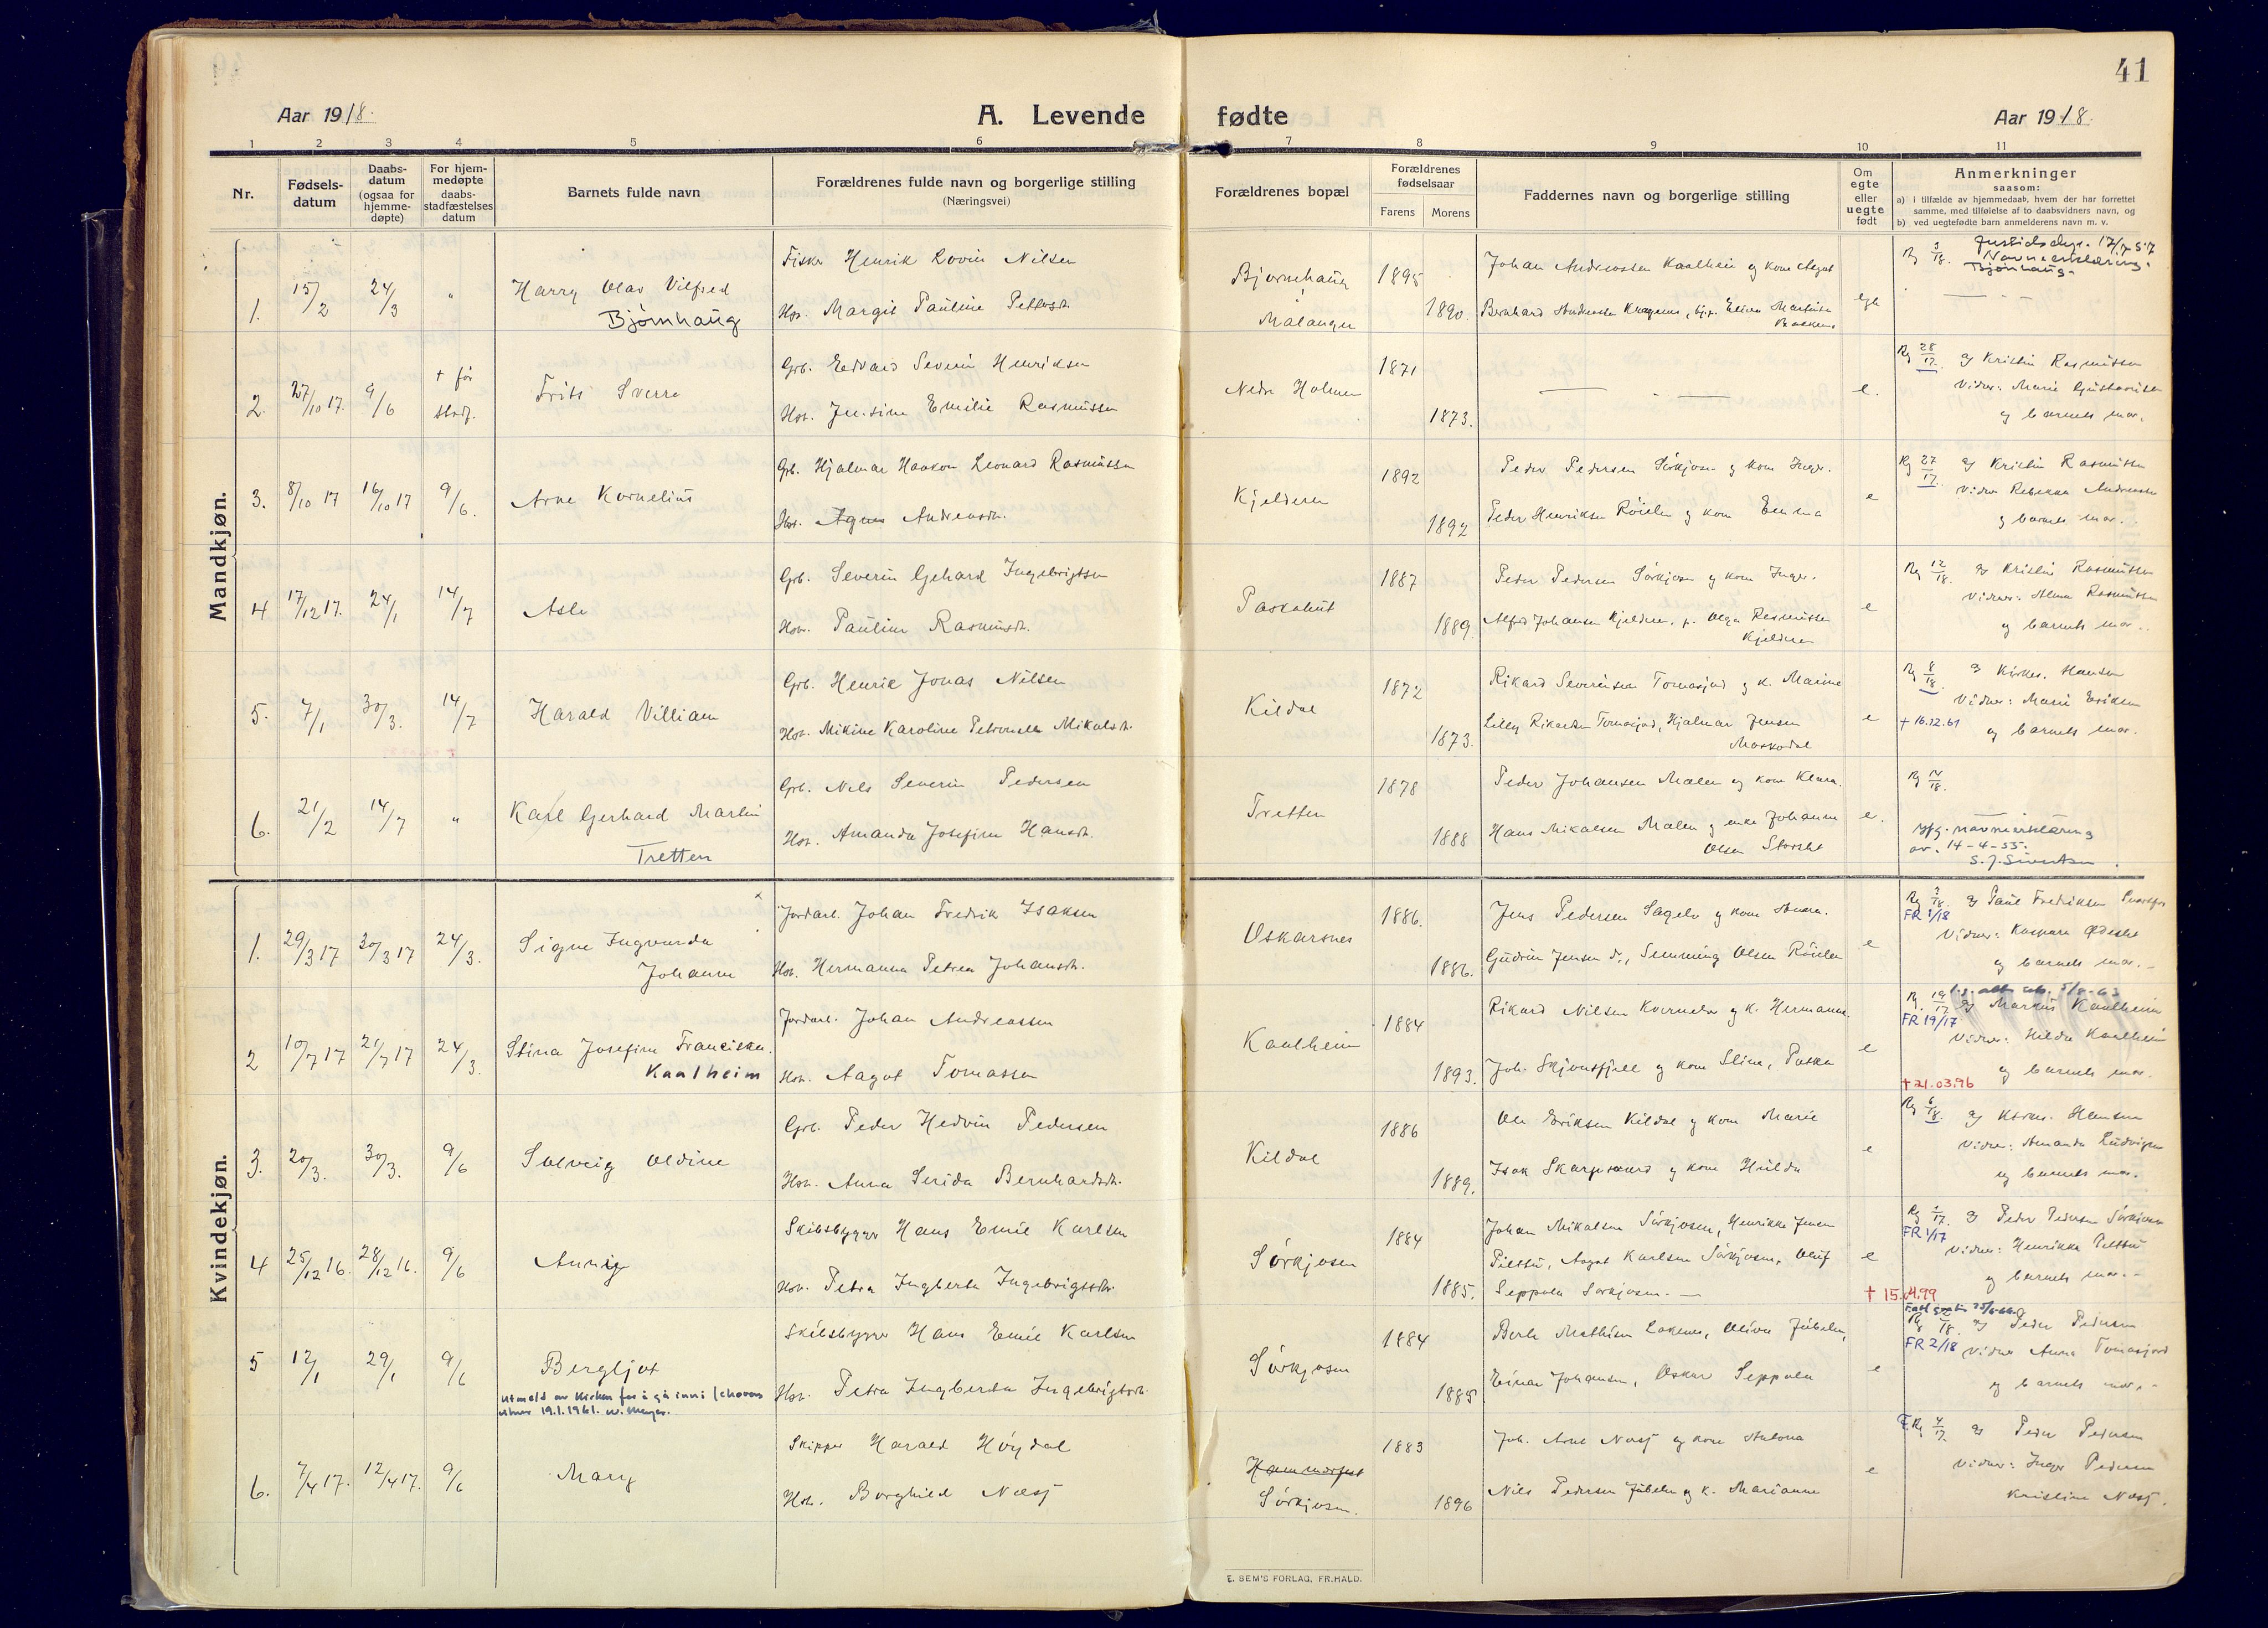 41
Aar 1918.
A. Levende fødte
Aar 1918.
1 2 3 4 5 6 7 8 9 10 11
Nr.
Fødsels-
datum
Daabs-
datum
(ogsaa for
hjemme-
døpte)
For hjem-
medøpte
daabs-
stadfæstelses
datum
Barnets fulde navn
Forældrenes fulde navn og borgerlige stilling
(Næringsvei)
Forældrenes bopæl
Forældrenes
fødselsaar
Farens Morens
Faddernes navn og borgerlige stilling
Om
egte
eller
uegte
født
Anmerkninger
saasom:
a) i tilfælde av hjemmedaab, hvem der har forrettet
samme, med tilføielse af to daabsvidners navn, og
b) ved uegtefødte barn anmelderens navn m. v.
Mandkjøn.
1. 15/2 24/3 "
Harry Olav Vilfred
Bjørnhaug
Fisker Henrik Nilsen
Hst. Margit Pauline
Bjørnehaug
Malangen
1895
1890.
Johan Andreassen Kaalhein og kone Agot
Bernhard Andreassen
Navneerklæring
Bjørnhaug
2. 27/10 17. 9/6 + før stadf.
Frits Sverre
Grb. Edvard Severin Henriksen
Hst. Jensine Emilie Rasmussen
Nedr Holmen
1871
1873.
e.
Rg 28/17. af Kristin Rasmussen
Vidner: Marie Gustavsen
og barnets mor.
3. 8/10 17 16/10 17 9/6.
Arne Kornelius
Grb. Hjalmar Haakon Leonard Rasmussen
Hst. Agnes Andreasdtr.
Kjelderen
1892
1892
Peder Pedersen Sørkjosen og kone Inger.
Peder Henriksen Røielen og kone Emma
e
Rg 27/17. af Kristin Rasmussen
Vidner Rebekka Andreassen
og barnets mor.
4 17/12 17. 24/1 14/7
Asle
Grb. Severin Gehard Ingebrigtsen
Hst. Pauline Rasmusdtr.
Paskahut
1887
1889.
Peder Pedersen Sørkjosen og kone Inger.
Alfred Johansen Kjelderen, p. Olga Rasmussen
Kjelderen
e
Rg 12/18. af Kristin Rasmussen
Vidner: Alma Rasmussen
og barnets mor.
5. 7/1 30/3. 14/7
Harald Villiam
Grb. Henrik Jonas Nilsen
Hst. Mikine Karoline Petronella Mikalsdtr.
Kildal
1872
1873.
Rikard Severinsen Tomasjord og k. Marine
Lilly Rikardsen Tomasjord, Hjalmar Jensen
Maskodal
e
Rg 8/18. af Kirkes. Hansen
Vidner: Marie Eriksen
+ 16.12.61
og barnets mor.
6. 21/2 14/7 "
Karl Gerhard Martin
Tretten
Grb. Nils Severin Pedersen
Hst. Amanda Josefine Hansdtr.
Tretten
1878
1888
Peder Johansen Malen og kone Klara.
Hans Mikalsen Malen og enke Johanne
Olsen Storslet
e.
Rg 14/18.
navneerklæring
av. 14-4-55.
S. J. Sivertsen
Kvindekjøn.
1. 29/3 17 30/3 17 24/3.
Signe Ingvarda
Johanne
Jordarb. Johan Fredrik Isaksen
Hst. Hermanna Petrea Johansdtr.
Oskarsnes
1886.
1886.
Jens Pedersen Sagelv og kone
Gudrun Jensen d., Semming Olsen Røielen
e
FR 1/18
af Paul Fredriksen
Vidner: Kaspara
og barnets mor.
2 10/7 17 21/7 17 24/3.
Stina Josefine Franciska.
Kaalheim
Jordarb. Johan Andreassen
Hst. Aagot Tomassen
Kaalhein
1884
1893.
Rikard Nilsen Kvernelv og k. Hermanna.
Joh. Skjønsfjell og kone Stina, Paska
e
Rg. 19/17 af Markus Kaalheim
FR 19/17
Vidner: Hilda Kaalheim
og barnets mor.
+ 21.03.96
3. 20/3. 30/3. 9/6
Solveig Oldine
Grb. Peder Hedvin Pedersen
Hst. Anna Serida Bernhardsdtr.
Kildal
1886
1889.
Ole Eriksen Kildal og kone Marie
Isak Skarpsaard og kone Hulda
e
Rg 6/18. af Kirkes. Hansen
Vidner: Amanda Ludvigsen
og barnets mor.
4 25/12 16. 28/12 16. 9/6
Annig
Skibsbygger Hans Emil Karlsen
Hst. Petra Ingberta Ingebrigtsdtr.
Sørkjosen
1884
1885.
Johan Mikalsen Sørkjosen, Henrikke Jensen
Pilttu, Aagot Karlsen Sørkjosen, Oluf
Seppola Sørkjosen.
e
af Peder Pedersen Sørkjosen
FR 1/17
Vidner: Henrikke Pilttu
og barnets mor.
† 15.04.99
5 12/1 29/1 9/6
Bergljot
Utmeldt av kirken for å gå inn i
19.1.1961.
Skibsbygger Hans Emil Karlsen
Hst. Petra Ingberta Ingebrigtsdtr.
Sørkjosen
1884
1885.
Berle Mathisen Lakenes, Oliva Jubelen,
Einar Johansen, Oskar Seppola
e
af Peder Pedersen
FR 2/18
Vidner Anna Tomasjord
og barnets mor.
6. 7/4 17. 12/4 17. 9/6
Mary
Skipper Harald Høydal
Hst. Borghild Næsj
Hammerfest
Sørkjosen.
1883
1896
Joh. Arnt Næsj og kone Antona
Nils Pedersen Jubelen og k. Marianne
e
F. Rg 4/17 af Peder Pedersen
Vidner: Inger Pedersen
Kristine Næsj.
E. SEM'S FORLAG, FR.HALD.